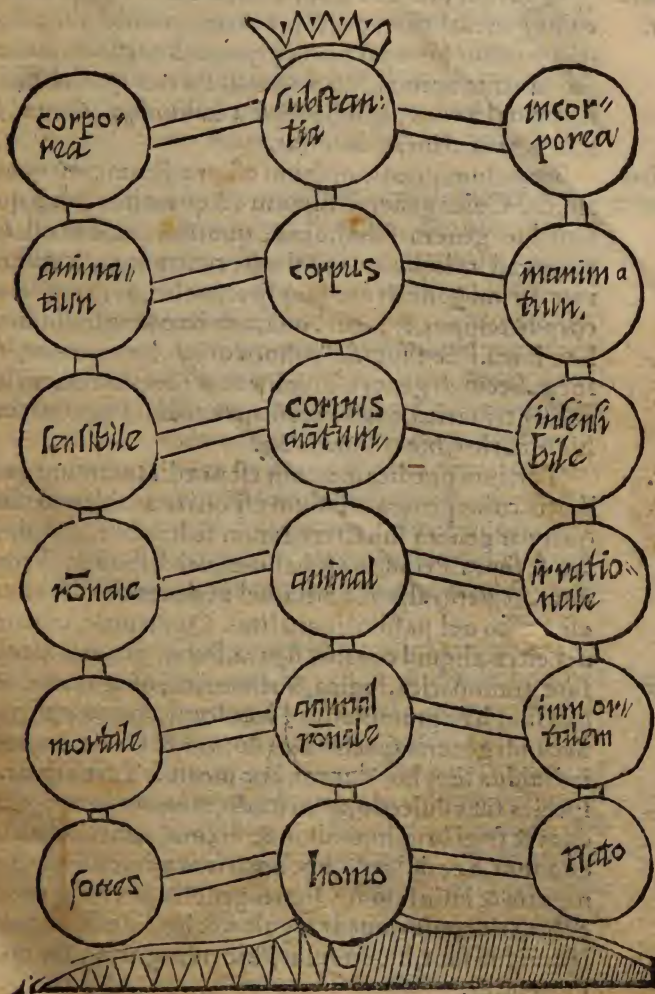 corpo
rea
substan:
tia
incor"
porea
anima
tum
corpus
inanima
tum.
sensibile
corpus
aĩatum
insensi
bile
rõnale
animal
irratio
nale
mortale
animal
rõnale
inmor
talem
sortes
homo
plato